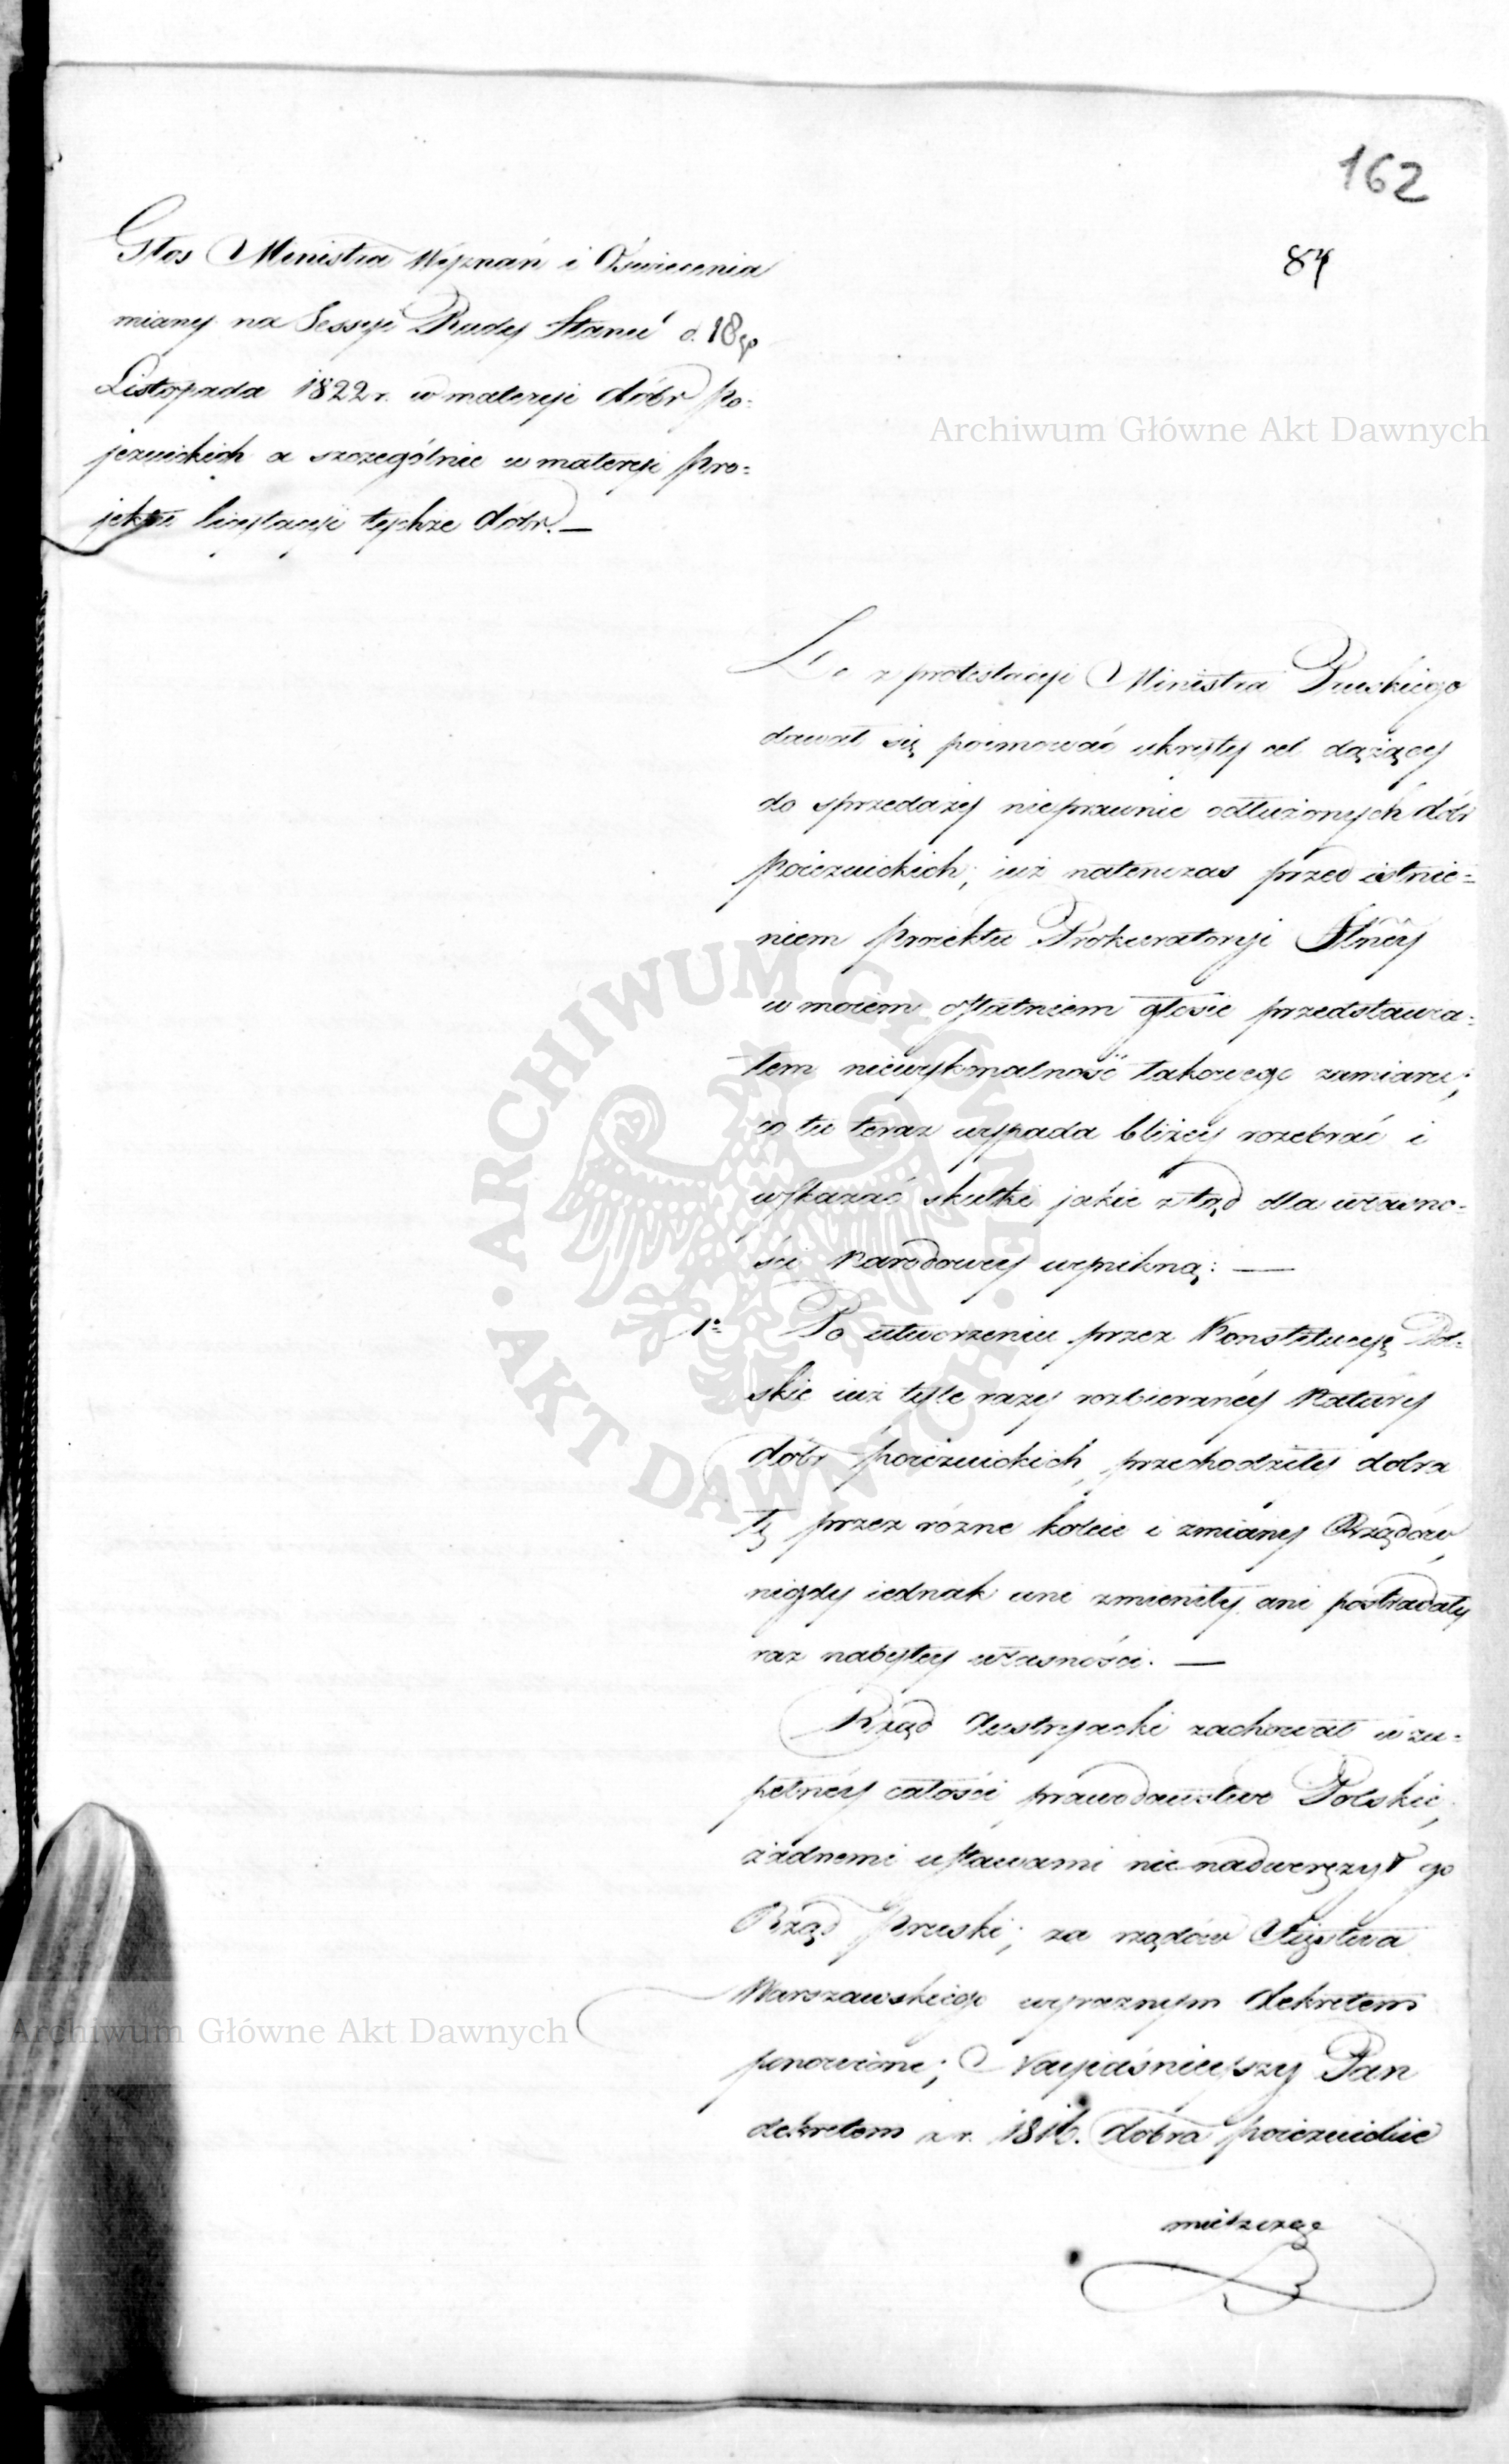 162
84
Głos Ministra Wyznań i Oświecenia
miany na Sessyi Rady Stanu d. 18go
Listopada 1822 r. w materyi dóbr po=
jezuickich a szczególnie w materyi pro=
jektu licytacyi tychże dóbr. —
Archiwum Główne Akt Dawnych
z protestacyi Ministra Pruskiego
dawał się poimować ukryty cel dążący
do sprzedaży nieprawnie odłużonych dóbr
poiezuickich; iuż natenczas przed istnie=
niem proiektu Prokuratoryi
w moiem ostatniem głosie przedstawia=
łem niewykonalność takowego zamiaru;
co tu teraz wypada bliżey rozebrać i
wskazać skutki jakie ztąd dla własno=
ści Narodowey wynikną: —
1o Po utworzeniu przez Konstytucyę Pol=
skie iuż tyle razy rozbieraney Natury
dóbr poiezuickich, przechodziły dobra
te przez różne koleie i zmiany Rządów,
nigdy iednak ani zmieniły ani postradały
raz nabytey własności. —
Rząd Austryacki zachował w zu=
pełney całości prawodawstwo Polskie,
żadnemi ustawami nie nadwerężył go
Rząd Pruski; za rządów Xięstwa
Warszawskiego wyraznym dekretem
ponowione; Nayiaśnieyszy Pan
dekretem z r. 1816. dobra poiezuickie
ARCHIWUM GŁÓWNE • AKT DAWNYCH •
Archiwum Główne Akt Dawnych